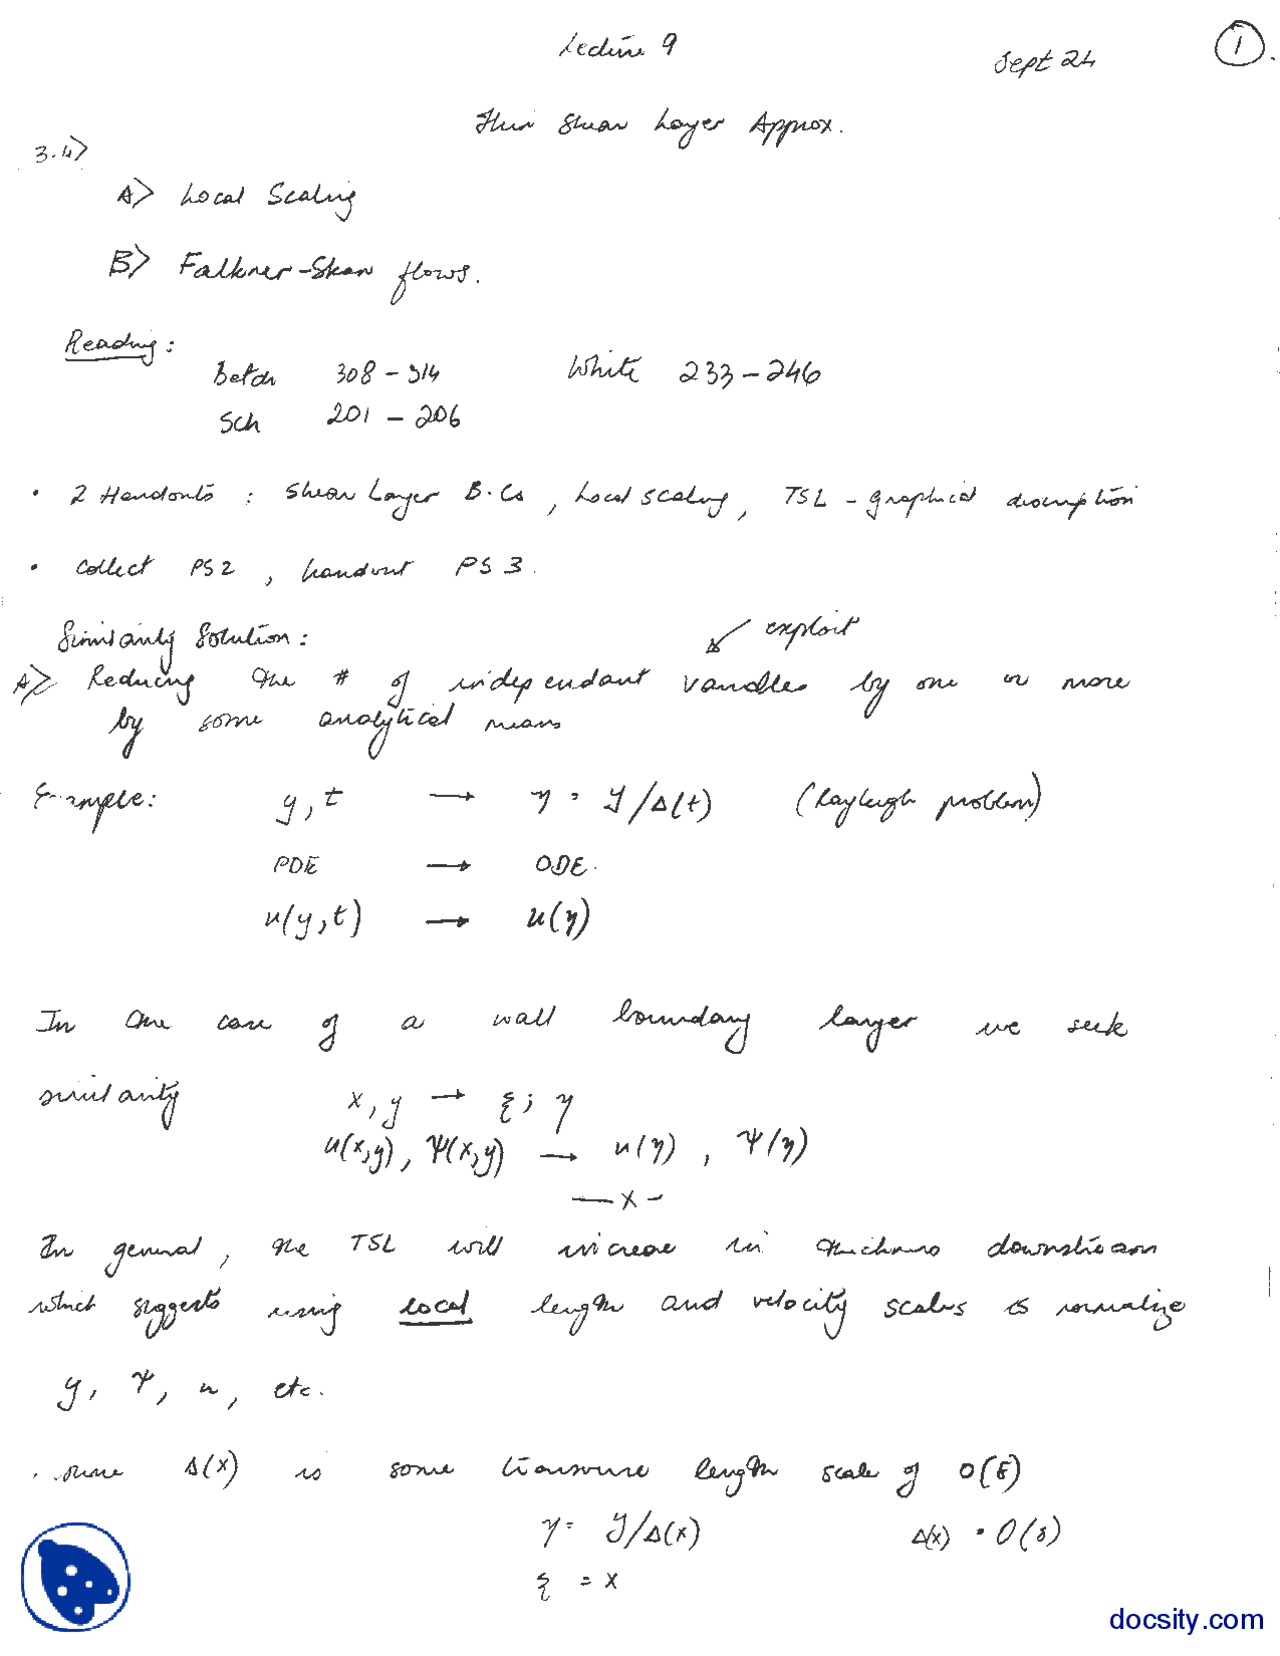 Lecture 9
Sept 24
1
Thin Shear Layer Approx.
3.4>
A> Local Scaling
B> Falkner-Skan flows.
Reading:
Batch 308-314 White 233-246
Sch 201-206
• 2 Handouts : Shear Layer B.Cs, Local scaling, TSL - graphical description
• Collect PS2, handout PS3.
Similarity Solution:
exploit
A> Reducing the # of independant variables by one or more
by some analytical means
Example: y, t → η = y/Δ(t) (Rayleigh problem)
PDE → ODE.
u(y,t) → u(η)
In the case of a wall boundary layer we seek
similarity x, y → ξ; η
u(x,y), Ψ(x,y) → u(η), Ψ(η)
— x —
In general, the TSL will increase in thickness downstream
which suggests using local length and velocity scales to normalize
y, Ψ, u, etc.
. since Δ(x) is some transverse length scale of O(δ)
η = y/Δ(x) Δ(x) = O(δ)
ξ = x
docsity.com